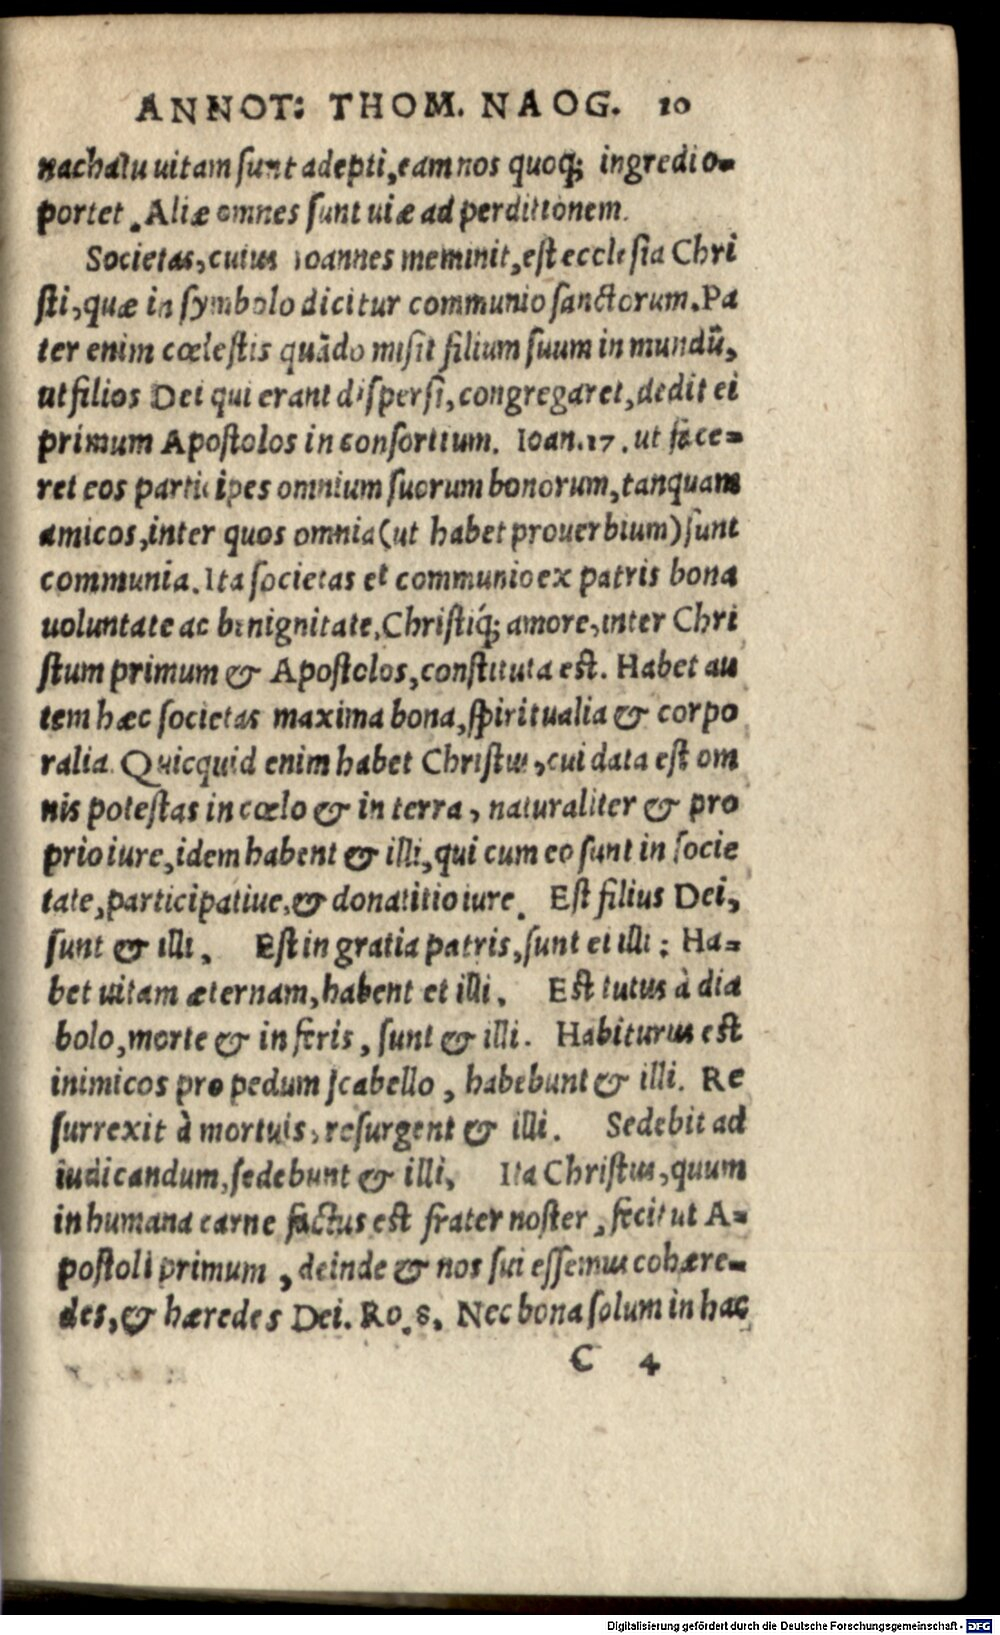 ANNOT: THOM. NAOG. 10
nachatu uitam sunt adepti, eam nos quoq; ingredi o-
portet. Aliæ omnes sunt uiæ ad perditionem.
Societas, cuius Ioannes meminit, est ecclesia Chri
sti, quæ in symbolo dicitur communio sanctorum. Pa
ter enim cœlestis quādo misit filium suum in mundū,
ut filios Dei qui erant dispersi, congregaret, dedit ei
primum Apostolos in consortium. Ioan. 17. ut face-
ret eos participes omnium suorum bonorum, tanquam
amicos, inter quos omnia (ut habet prouerbium) sunt
communia. Ita societas et communio ex patris bona
uoluntate ac benignitate, Christiq́; amore, inter Chri
stum primum & Apostolos, constituta est. Habet au
tem hæc societas maxima bona, spiritualia & corpo
ralia. Quicquid enim habet Christus, cui data est om
nis potestas in cœlo & in terra, naturaliter & pro
prio iure, idem habent & illi, qui cum eo sunt in socie
tate, participatiue, & donatitio iure. Est filius Dei,
sunt & illi. Est in gratia patris, sunt et illi: Ha-
bet uitam æternam, habent et illi. Est tutus à dia
bolo, morte & inferis, sunt & illi. Habiturus est
inimicos pro pedum scabello, habebunt & illi. Re
surrexit à mortuis, resurgent & illi. Sedebit ad
iudicandum, sedebunt & illi. Ita Christus, quum
in humana carne factus est frater noster, fecit ut A-
postoli primum, deinde & nos sui essemus cohære-
des, & hæredes Dei. Ro. 8. Nec bona solum in hac
C 4
Digitalisierung gefördert durch die Deutsche Forschungsgemeinschaft - DFG